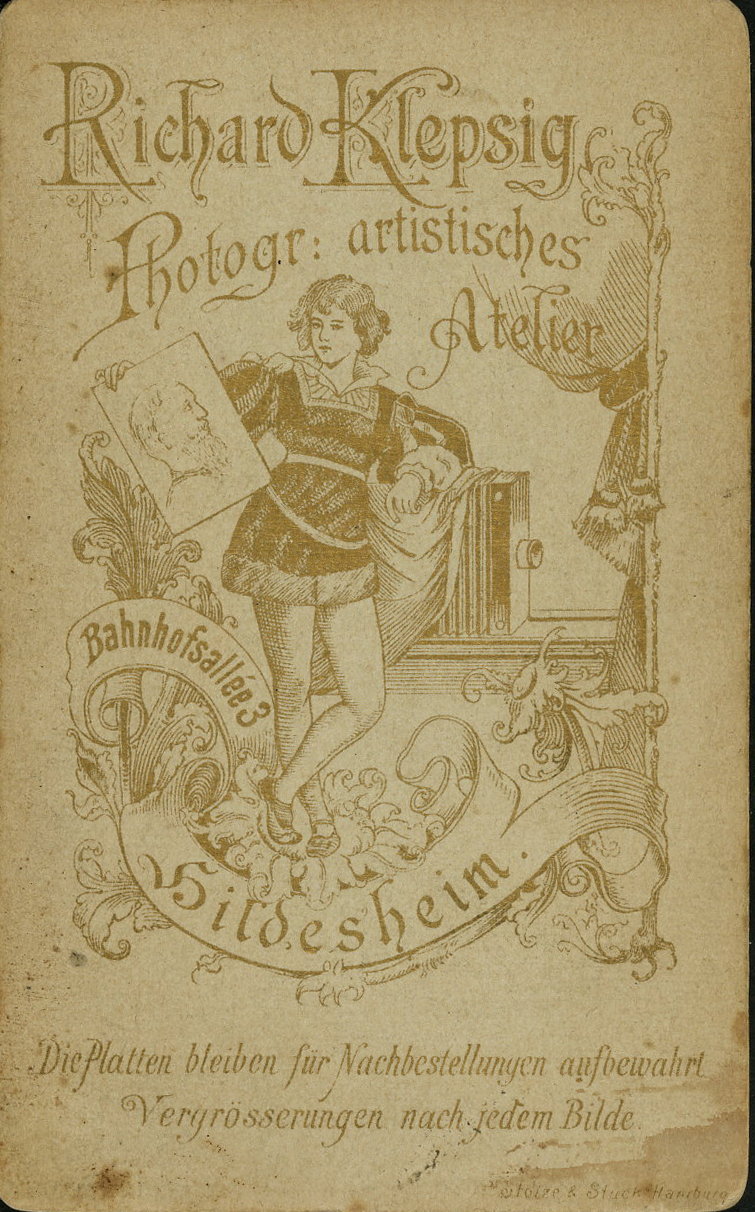 Richard Klepsig
Photogr: artistisches
Atelier
Bahnhofsallée 3
Hildesheim.
Die Platten bleiben für Nachbestellungen aufbewahrt
Vergrösserungen nach jedem Bilde.
& Hamburg